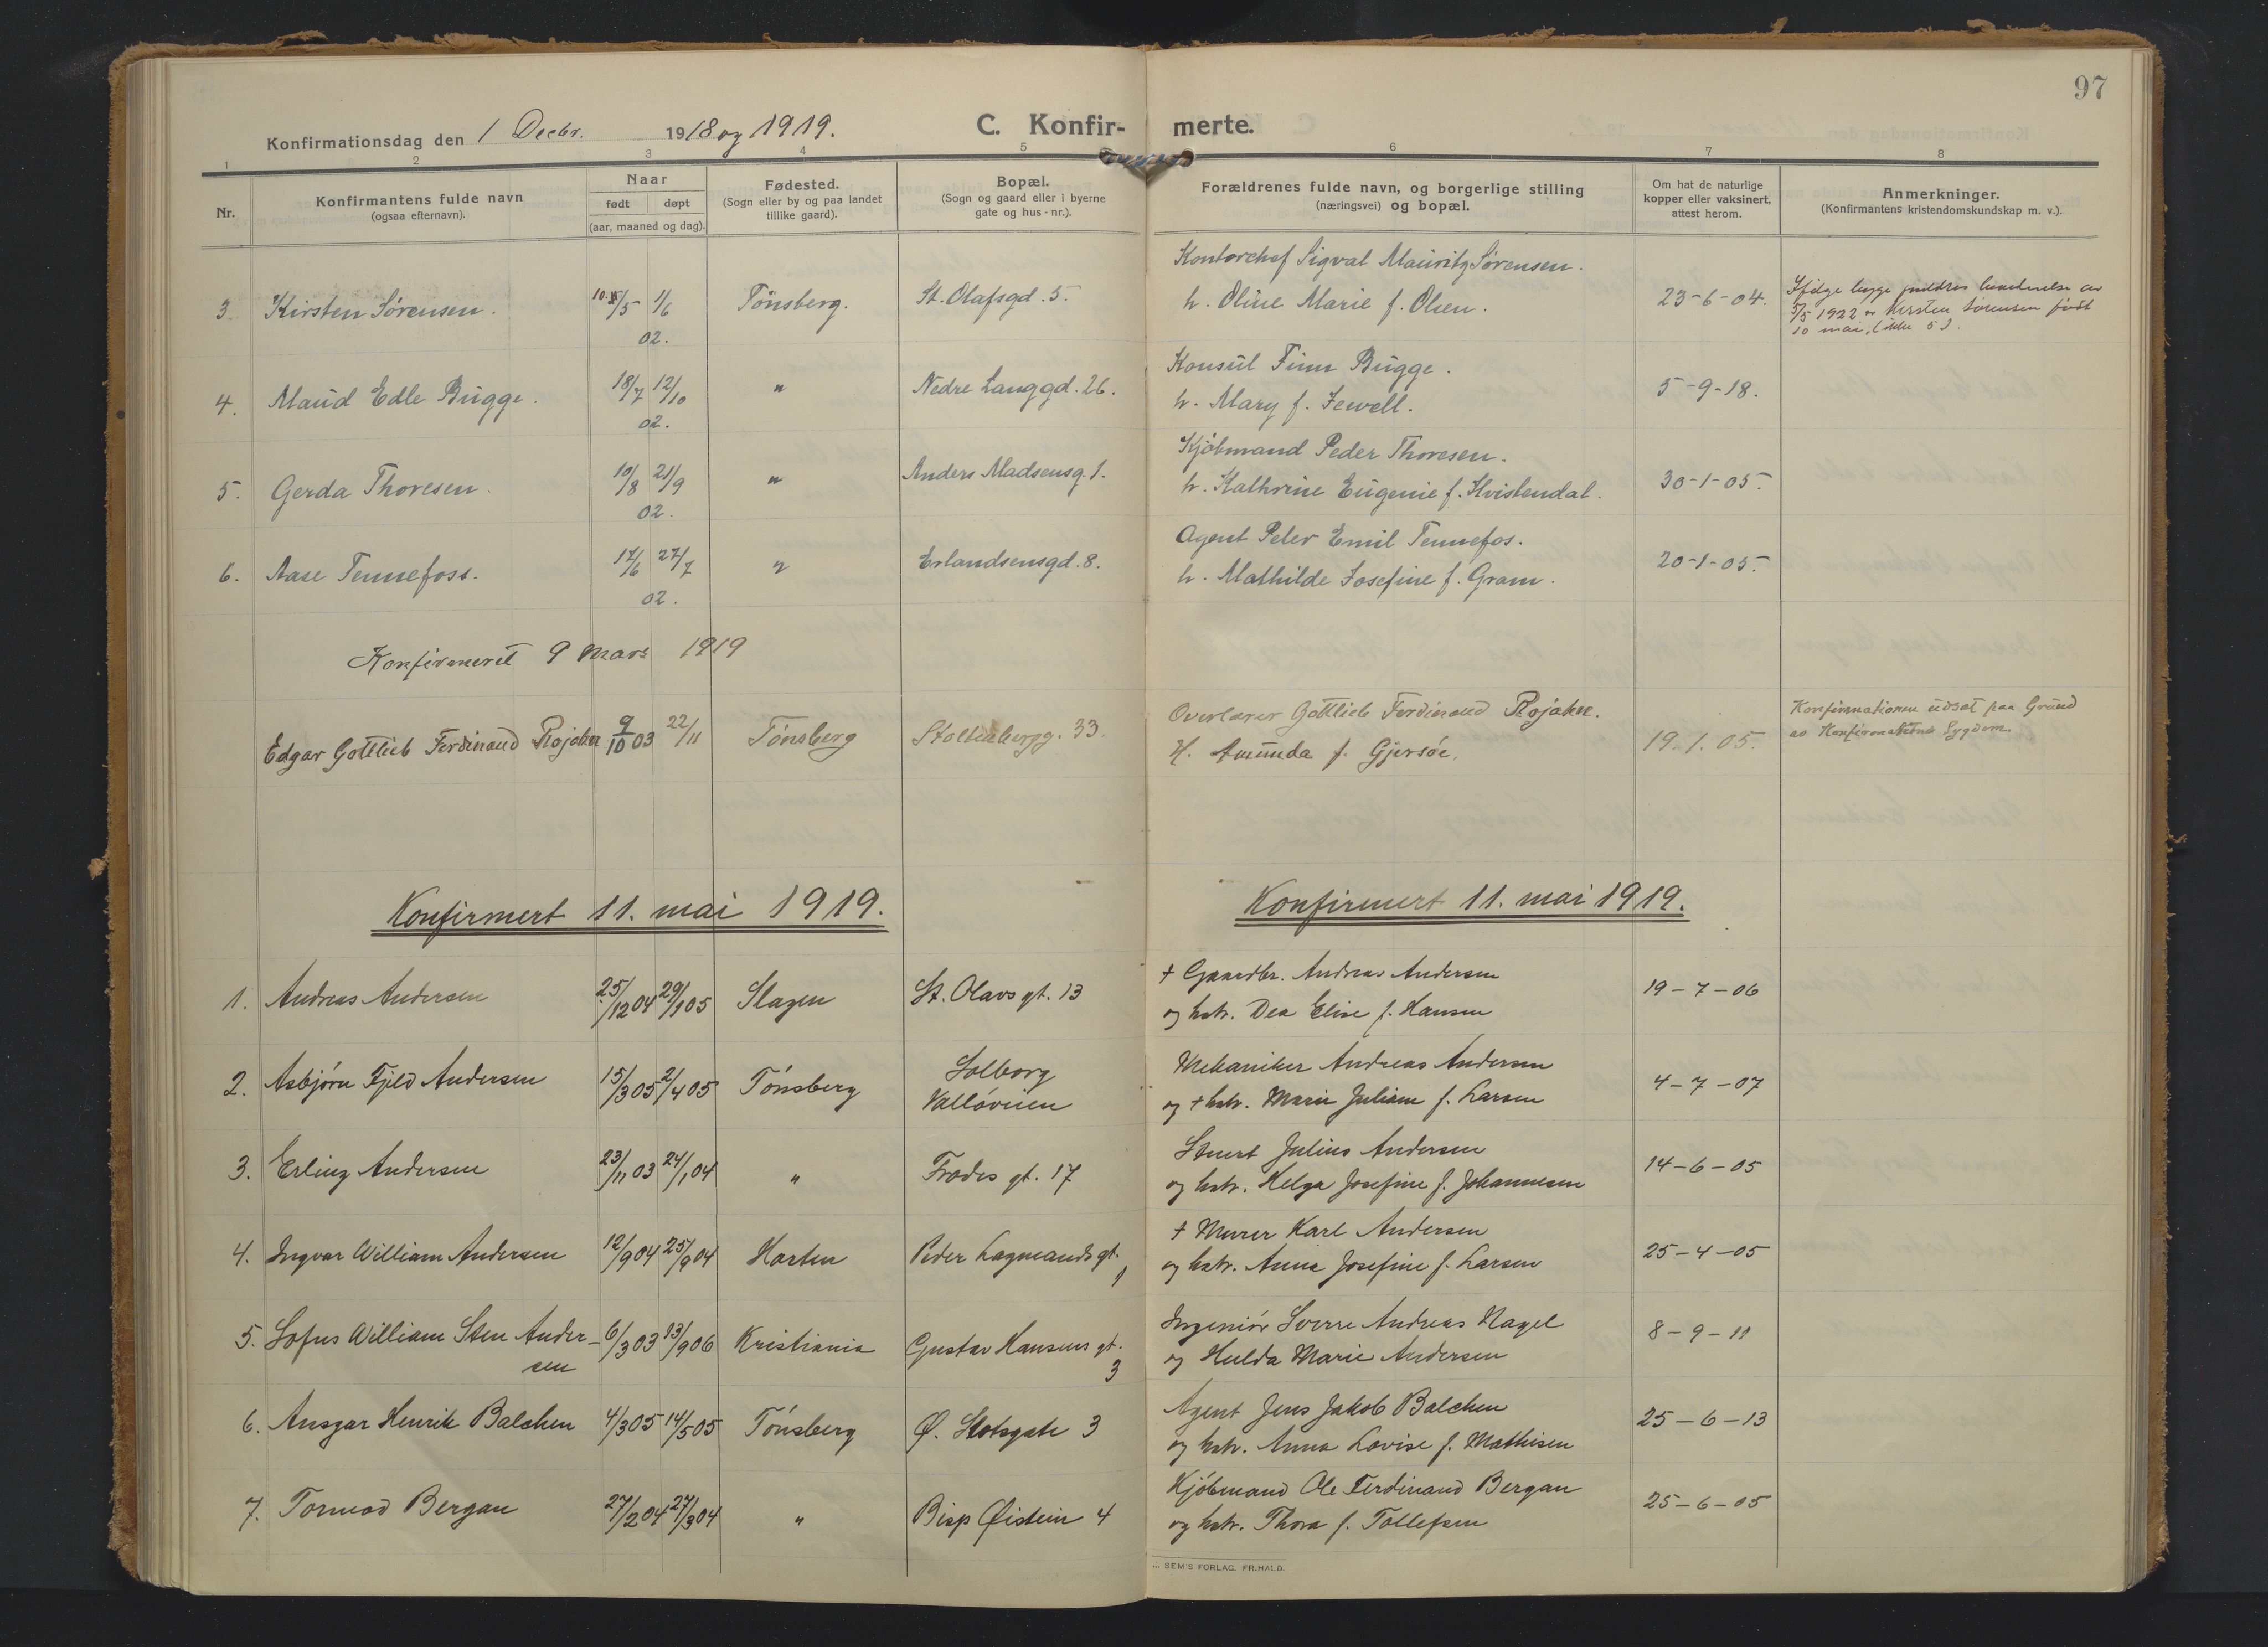 97
Konfirmationsdag den 1 Decbr. 1918 og 1919. C. Konfir- merte.
1 2 3 4 5 6 7 8
Nr.
Konfirmantens fulde navn
(ogsaa efternavn).
Naar
født døpt
(aar, maaned og dag).
Fødested.
(Sogn eller by og paa landet
tillike gaard).
Bopæl.
(Sogn og gaard eller i byerne
gate og hus-nr.).
Forældrenes fulde navn, og borgerlige stilling
(næringsvei) og bopæl.
Om hat de naturlige
kopper eller vaksinert,
attest herom.
Anmerkninger.
(Konfirmantens kristendomskundskap m. v.).
Kontorchef Sigval Mauritz Sørensen.
3 Kirsten Sørensen. 10. /5 1/6 Tönsberg. St. Olafsgd. 5. h. Oline Marie f. Olsen. 23-6-04.
02.
Ifølge
5/5 1922 er Kirsten Sørensen født
10 mai, (ikke 5).
Konsul Finn Bugge.
4. Maud Edle Bugge. 18/7 12/10 " Nedre Langgd. 26. h. Mary f. Jewell. 5-9-18.
02.
Kjöbmand Peder Thoresen.
5. Gerda Thoresen. 10/8 21/9 " Anders Madsensg. 1. h. Kathrine Eugenie f. Kvistendal. 30-1-05.
02.
Agent Peter Emil Tennefos.
6. Aase Tennefoss. 17/6 27/7 " Erlandsensgd. 8. h. Mathilde Josefine f. Gram. 20-1-05.
02.
Konfirmeret 9 Mars 1919
Overlærer Gottlieb Ferdinand Rojahn.
Edgar Gottlieb Ferdinand Rojahn 9/10 03 22/11 Tönsberg Stoltenbergg. 33. H. Amunda f. Gjersöe. 19.1.05.
Konfirmationen udsat paa Grund
av Konfirmantens Sygdom.
Konfirmert 11. mai 1919. Konfirmert 11. mai 1919.
† Gaardbr. Andreas Andersen
1. Andreas Andersen 25/12 04 29/1 05 Slagen St. Olavs gt. 13 og hstr. Dea Elise f. Hansen 19-7-06
Mekaniker Andreas Andersen
2. Asbjörn Fjeld Andersen 15/3 05 2/4 05 Tönsberg Solborg
Vallöveien og † hstr. Marie Juliane f. Larsen 4-7-07
Stuert Julius Andersen
3. Erling Andersen 23/11 03 24/1 04 " Frodes gt. 17 og hstr. Helga Josefine f. Johannesen 14-6-05
† Murer Karl Andersen
4. Ingvar William Andersen 12/9 04 25/9 04 Horten Peder Lagmands gt.
1 og hstr. Anna Josefine f. Larsen 25-4-05
Ingeniör Sverre Andreas Nagel
5. Sofus William Sten Ander-
sen 6/3 03 13/9 06 Kristiania Gustav Hansens gt.
3 og Hulda Marie Andersen 8-9-11
Agent Jens Jakob Balchen
6. Ansgar Henrik Balchen 4/3 05 14/5 05 Tönsberg Ø. Slotsgate 3 og hstr. Anna Lovise f. Mathisen 25-6-13
Kjöbmand Ole Ferdinand Bergan
7. Tormod Bergan 27/2 04 27/3 04 " Bisp Øistein 4 og hstr. Thora f. Tollefsen 25-6-05
SEM'S FORLAG. FR. HALD.